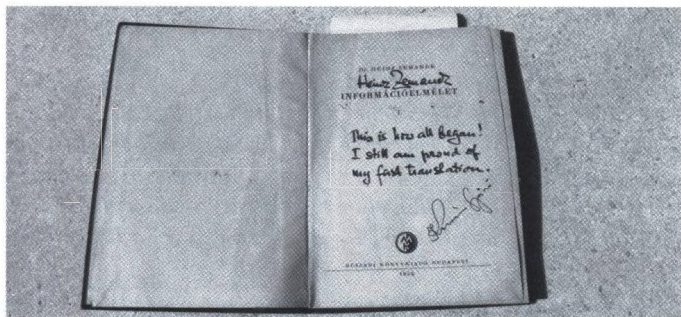 DR. HEINZ ZEMANEK
Heinz Zemanek
INFORMÁCIÓELMÉLET
I
This is how all began!
I still am proud of
my fast translation.
MŰSZAKI KÖNYVKIADÓ BUDAPEST